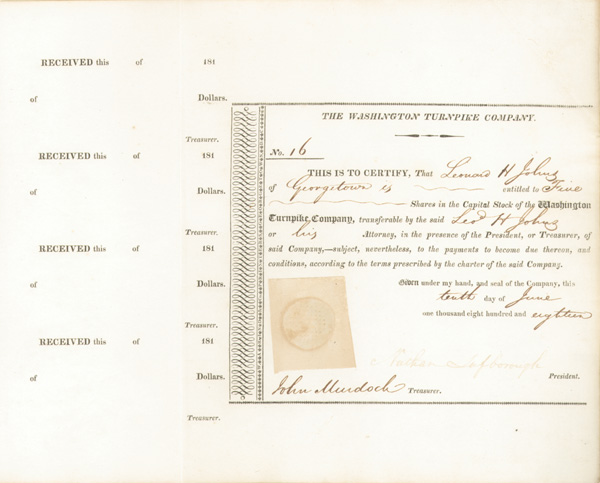 RECEIVED this of 181
of Dollars.
Treasurer.
RECEIVED this of 181
of Dollars.
Treasurer.
RECEIVED this of 181
of Dollars.
Treasurer.
RECEIVED this of 181
of Dollars.
Treasurer.
THE WASHINGTON TURNPIKE COMPANY.
No. 16
THIS IS TO CERTIFY, That Leonard H Johns
of Georgetown is entitled to Five
Shares in the Capital Stock of the Washington
Turnpike Company, transferable by the said Leod H Johns
or his Attorney, in the presence of the President, or Treasurer, of
said Company,—subject, nevertheless, to the payments to become due thereon, and
conditions, according to the terms prescribed by the charter of the said Company.
Given under my hand, and seal of the Company, this
tenth day of June
one thousand eight hundred and eighteen
President.
John Murdoch Treasurer.